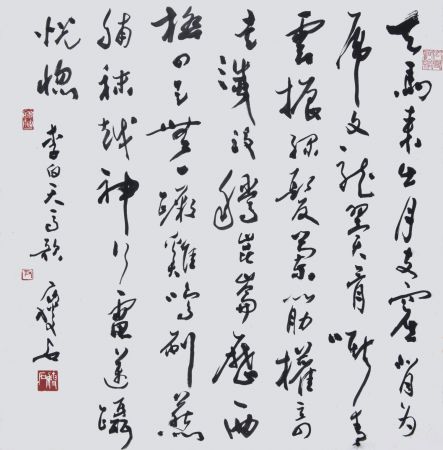 天馬來出月支窟背為
虎文龍翼骨嘶青
雲振綠髮蘭筋權奇
走滅沒騰崑崙歷西
極四足無一蹶雞鳴刷燕
晡秣越神行電邁躡
怳惚
李白天馬歌